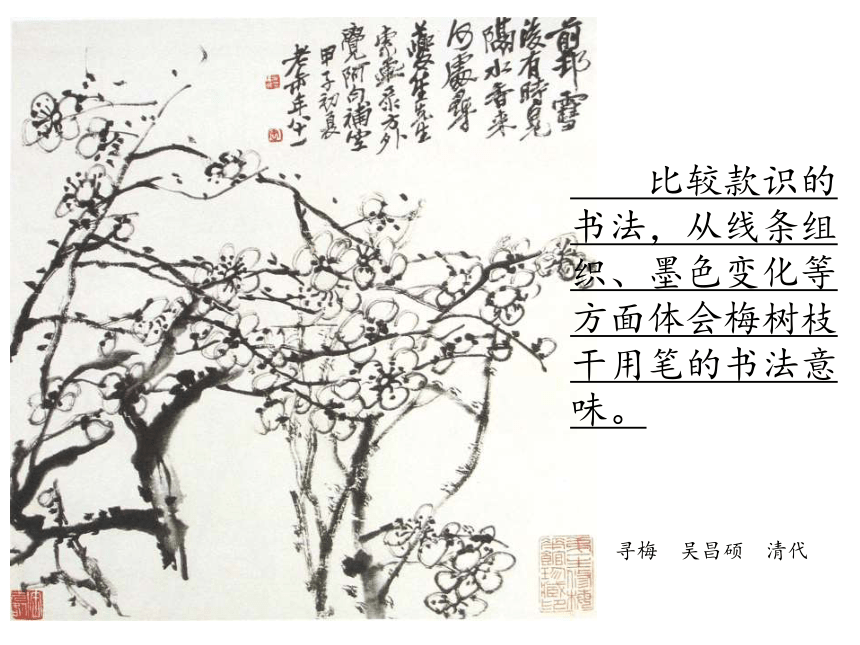 前邨雪
後有時見
隔水香来
何處尋
先生
方外
覺阿句補空
甲子初夏
老缶年八十一
比较款识的
书法，从线条组
织、墨色变化等
方面体会梅树枝
干用笔的书法意
味。
寻梅 吴昌硕 清代